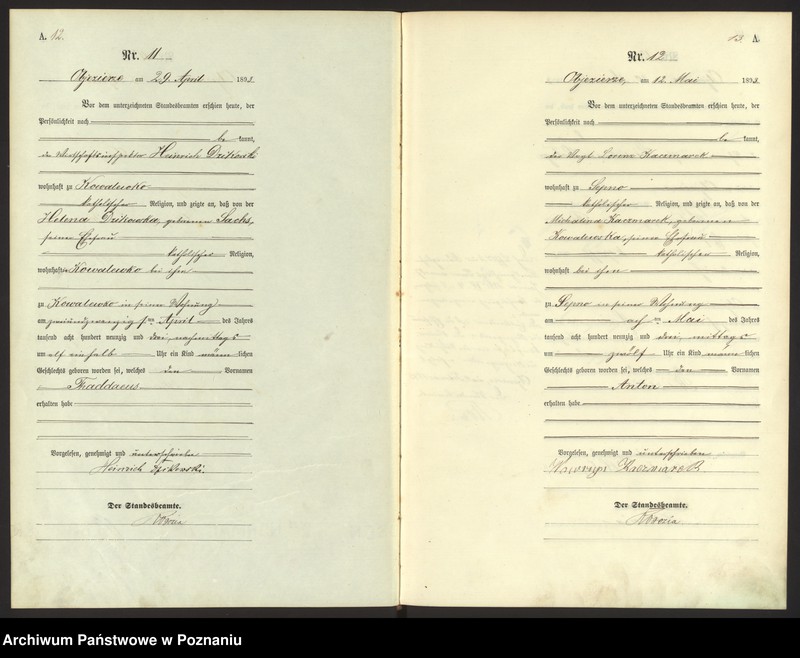 A. 12.
Nr. 11
Objezierze am 29. April 1893.
Vor dem unterzeichneten Standesbeamten erschien heute, der
Persönlichkeit nach
be kannt,
der Wirthschaftsinspektor Heinrich
wohnhaft zu Kowalewko
katholischer Religion, und zeigte an, daß von der
Helena geborenen Sachs,
seiner Ehefrau
katholischer Religion,
wohnhaft Kowalewko bei ihm
zu Kowalewko in seiner Wohnung
am zweiundzwanzigsten April des Jahres
tausend acht hundert neunzig und drei, nachmittags
um elf einhalb Uhr ein Kind männlichen
Geschlechts geboren worden sei, welches den Vornamen
Thaddaeus
erhalten habe
Vorgelesen, genehmigt und unterschrieben
Heinrich
Der Standesbeamte.
13. A.
Nr. 12
Objezierze, am 12. Mai 1893.
Vor dem unterzeichneten Standesbeamten erschien heute, der
Persönlichkeit nach
be kannt,
der Vogt Kaczmarek
wohnhaft zu Sepno
katholischer Religion, und zeigte an, daß von der
Michalina Kaczmarek, geborenen
Kowalewska, seiner Ehefrau
katholischer Religion,
wohnhaft bei ihm
zu Sepno in seiner Wohnung
am ach ten Mai des Jahres
tausend acht hundert neunzig und drei, mittags
um zwölf Uhr ein Kind männlichen
Geschlechts geboren worden sei, welches den Vornamen
Anton
erhalten habe
Vorgelesen, genehmigt und unterschrieben
Wawrzyn Kaczmarek
Der Standesbeamte.
Archiwum Państwowe w Poznaniu